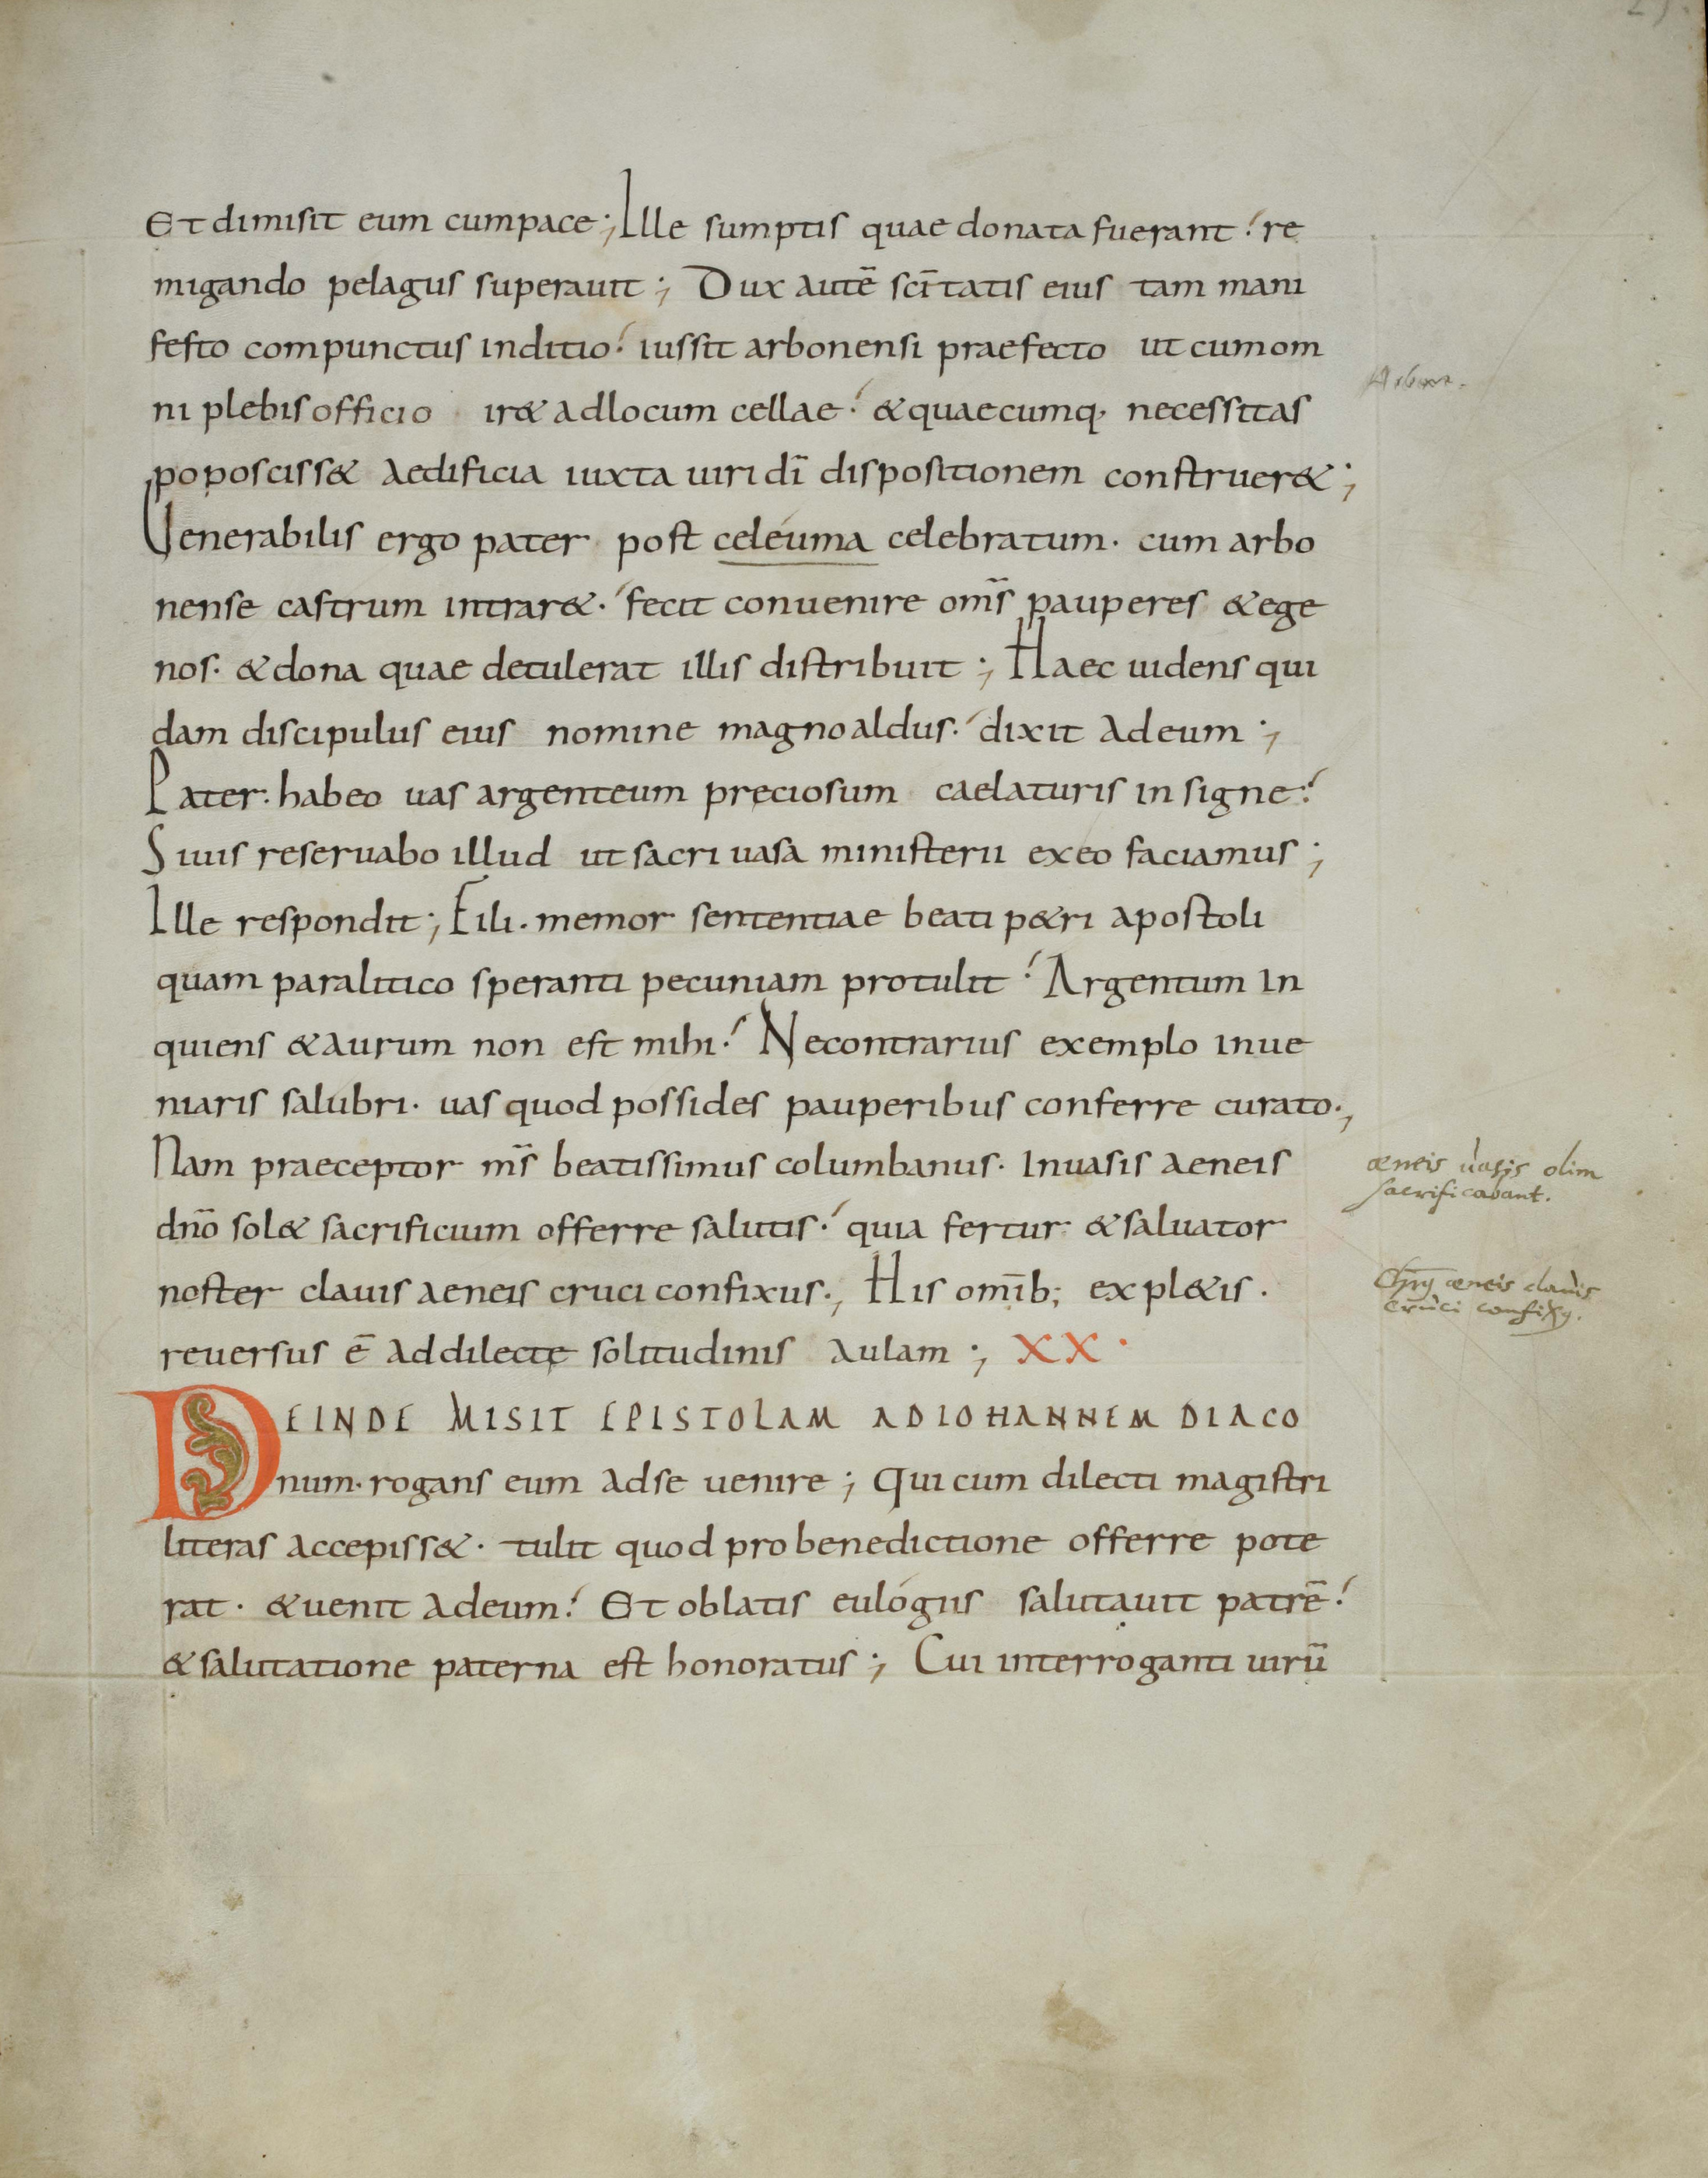 Et dimisit eum cum pace; Ille sumptis quae donata fuerant. re
migando pelagus superauit; Dux autē sc̄itatis eius tam mani
festo compunctus inditio. iussit arbonensi praefecto ut cum om
ni plebis officio ir& ad locum cellae. & quaecumq; necessitas
poposciss& aedificia iuxta uiri dī dispositionem construer&;
Uenerabilis ergo pater post celéuma celebratum. cum arbo
nense castrum intrar&. fecit conuenire om̄s pauperes & ege
nos. & dona quae detulerat illis distribuit; Haec uidens qui
dam discipulus eius nomine magnoaldus. dixit ad eum;
Pater. habeo uas argenteum preciosum caelaturis insigne.
Si uis reseruabo illud ut sacri uasa ministerii ex eo faciamus;
Ille respondit; Fili. memor sententiae beati p&ri apostoli
quam paralitico speranti pecuniam protulit. Argentum in
quiens & aurum non est mihi. Ne contrarius exemplo inue
niaris salubri. uas quod possides pauperibus conferre curato;
Nam praeceptor m̄s beatissimus columbanus. In uasis aeneis
dn̄o sol& sacrificium offerre salutis. quia fertur & saluator
noster clauis aeneis cruci confixus; His om̄ib; expl&is.
reuersus ē ad dilectę solitudinis aulam; XX.
DEINDE MISIT EPISTOLAM AD IOHANNEM DIACO
num. rogans eum ad se uenire; Qui cum dilecti magistri
literas accepiss&. tulit quod pro benedictione offerre pote
rat. & uenit ad eum. Et oblatis eulógiis salutauit patrē.
& salutatione paterna est honoratus; Cui interroganti uirū
aeneis uasis olim
sacrificabant.
aeneis clauis
cruci